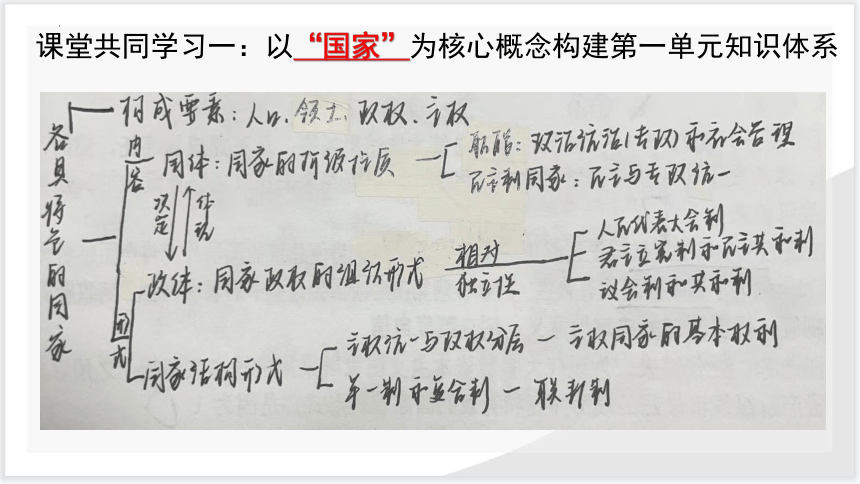 课堂共同学习一：以“国家”为核心概念构建第一单元知识体系
各具特色的国家
构成要素：人口、领土、政权、主权
内容
国体：国家的阶级性质
职能：政治统治(专政)和社会管理
民主制国家：民主与专政统一
决定
体现
政体：国家政权的组织形式
相对独立性
人民代表大会制
君主立宪制和民主共和制
议会制和共和制
形式
国家结构形式
主权统一与政权分层 — 主权国家的基本权利
单一制和复合制 — 联邦制